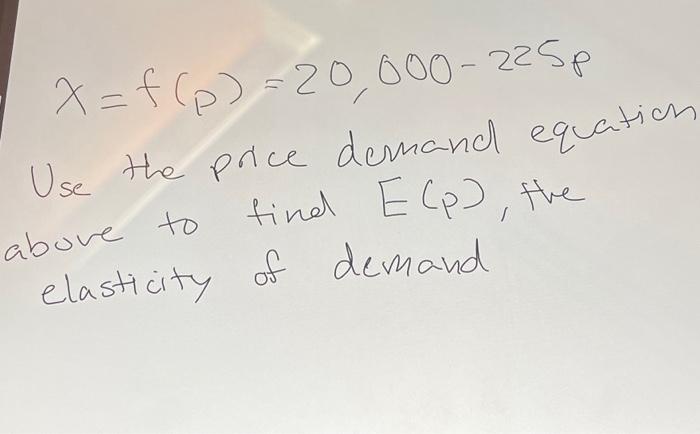 x = f(p) = 20,000 - 225p
Use the price demand equation
above to find E(p), the
elasticity of demand